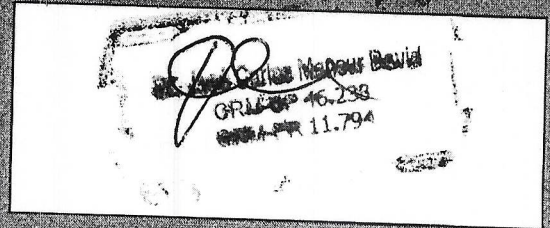 Carlos Mansur David
CRM-SP 46.233
CRM-PR 11.794